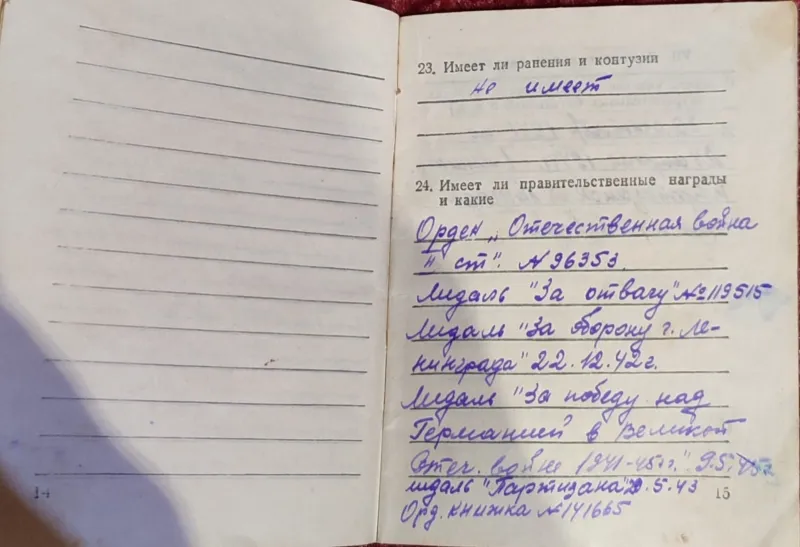 14
23. Имеет ли ранения и контузии
не имеет
24. Имеет ли правительственные награды
и какие
Орден „Отечественная война
II ст". N 96353.
Мидаль "За отвагу" №119515
Мидаль "За оборону г. Ле-
нинграда" 22.12.42г.
Мидаль "За победу над
Германией в Великой
Отеч. войне 1941-45гг." 9.5.45г
мидаль "Партизана" .5.43
Орд. книжка №141665
15